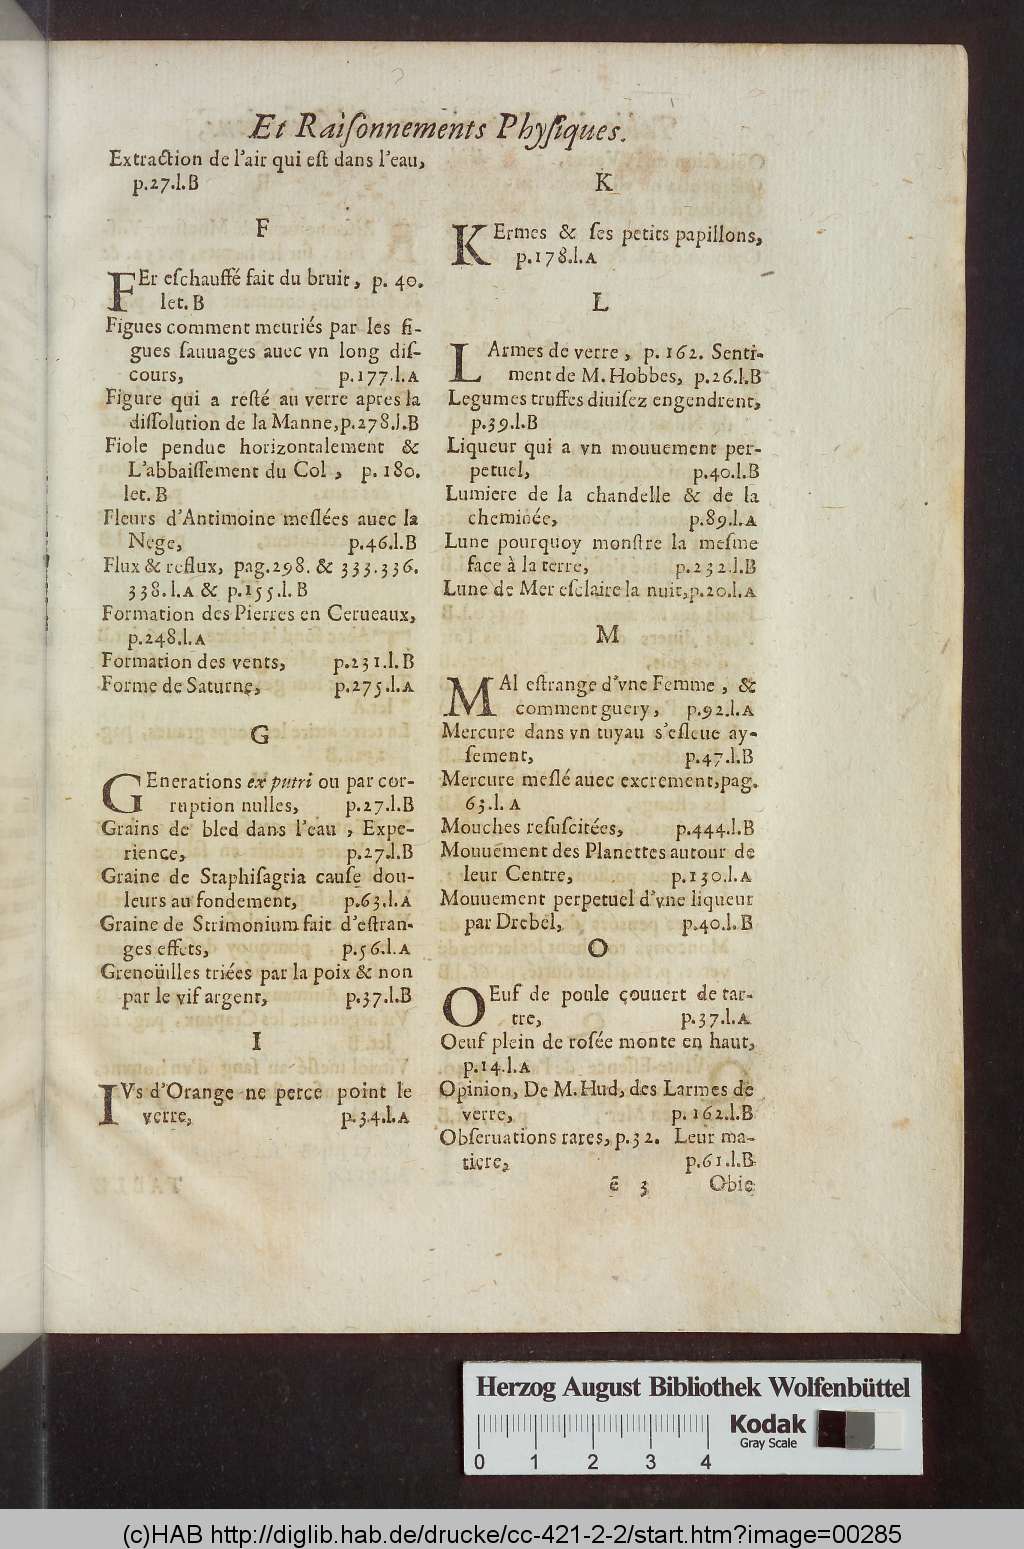 Et Raiſonnements Phyſiques.
Extraction de l'air qui eſt dans l'eau,
p.27.l.B
F
FEr eſchauffé fait du bruit, p. 40.
let. B
Figues comment meuriés par les fi-
gues ſauuages auec vn long diſ-
cours, p.177.l.A
Figure qui a reſté au verre apres la
diſſolution de la Manne, p.278.l.B
Fiole pendue horizontalement &
L'abbaiſſement du Col, p. 180.
let. B
Fleurs d'Antimoine meſlées auec la
Nege, p.46.l.B
Flux & reflux, pag.298. & 333.336.
338.l.A & p.155.l.B
Formation des Pierres en Cerueaux,
p.248.l.A
Formation des vents, p.231.l.B
Forme de Saturne, p.275.l.A
G
GEnerations ex putri ou par cor-
ruption nulles, p.27.l.B
Grains de bled dans l'eau, Expe-
rience, p.27.l.B
Graine de Staphiſagria cauſe dou-
leurs au fondement, p.63.l.A
Graine de Strimonium fait d'eſtran-
ges effets, p.56.l.A
Grenoüilles triées par la poix & non
par le vif argent, p.37.l.B
I
IVs d'Orange ne perce point le
verre, p.34.l.A
K
KErmes & ſes petits papillons,
p.178.l.A
L
LArmes de verre, p. 162. Senti-
ment de M. Hobbes, p.26.l.B
Legumes truffes diuiſez engendrent,
p.39.l.B
Liqueur qui a vn mouuement per-
petuel, p.40.l.B
Lumiere de la chandelle & de la
cheminée, p.89.l.A
Lune pourquoy monſtre la meſme
face à la terre, p.232.l.B
Lune de Mer eſclaire la nuit, p.20.l.A
M
MAl eſtrange d'vne Femme, &
comment guery, p.92.l.A
Mercure dans vn tuyau s'eſleue ay-
ſement, p.47.l.B
Mercure meſlé auec excrement, pag.
63.l. A
Mouches reſuſcitées, p.444.l.B
Mouuement des Planettes autour de
leur Centre, p.130.l.A
Mouuement perpetuel d'vne liqueur
par Drebel, p.40.l.B
O
OEuf de poule çouuert de tar-
tre, p.37.l.A
Oeuf plein de roſée monte en haut,
p.14.l.A
Opinion, De M. Hud, des Larmes de
verre, p. 162.l.B
Obſeruations rares, p.32. Leur ma-
tiere, p.61.l.B
ē 3 Obie
Herzog August Bibliothek Wolfenbüttel
Kodak
Gray Scale
0 1 2 3 4
(c)HAB http://diglib.hab.de/drucke/cc-421-2-2/start.htm?image=00285